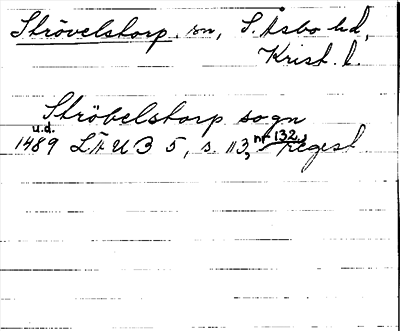 Strövelstorp, sn, S. Åsbo hd,
Krist. l.
Ströbelstorp sogn
u.d.
1489 LÄUB 5, s. 113, nr 132, Regest